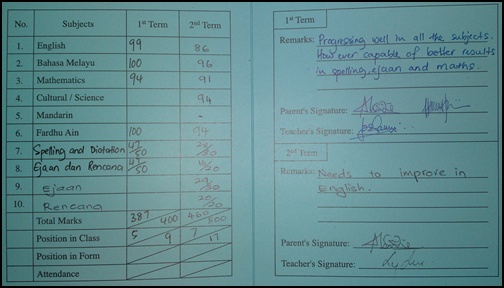 No. Subjects 1st Term 2nd Term
1. English 99 86
2. Bahasa Melayu 100 96
3. Mathematics 94 91
4. Cultural / Science 94
5. Mandarin -
6. Fardhu Ain 100 94
7. Spelling and Dictation 47/50
8. Ejaan dan Rencana 47/50
9. Ejaan
10. Rencana 20/20
Total Marks 387 400 460 500
Position in Class 5 9 7 17
Position in Form
Attendance
1st Term
Remarks: Progressing well in all the subjects.
However capable of better results
in spelling, ejaan and maths.
Parent's Signature:
Teacher's Signature:
2nd Term
Remarks: Needs to improve in
English.
Parent's Signature:
Teacher's Signature: